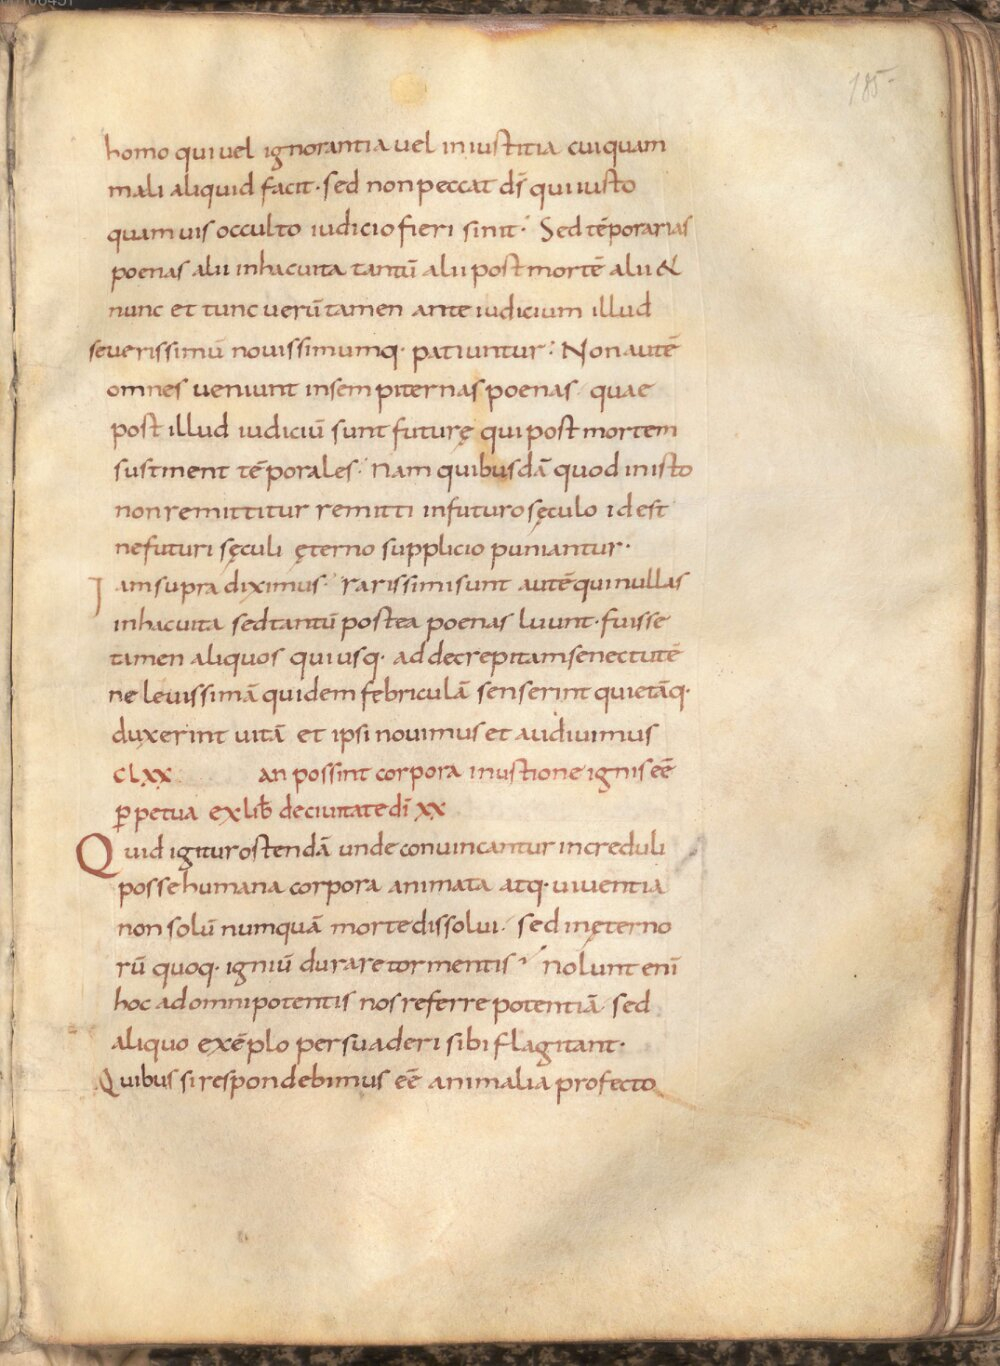 185.
homo qui uel ignorantia uel iniustitia cuiquam
mali aliquid facit· sed non peccat dſ qui iusto
quamuis occulto iudicio fieri sinit· Sed tēporarias
poenas alii inhacuita tantū alii post mortē alii &
nunc et tunc uerūtamen ante iudicium illud
seuerissimū nouissimumq· patiuntur: Non autē
omnes ueniunt insempiternas poenas quae
post illud iudiciū sunt futurę qui post mortem
sustinent tēporales· Nam quibusdā quod inisto
non remittitur remitti infuturo sęculo id est
nefuturi sęculi ęterno supplicio puniantur·
Iam supra diximus· rarissimi sunt autē qui nullas
inhacuita sed tantū postea poenas luunt· fuisse
tamen aliquos qui usq· ad decrepitam senectutē
ne leuissimā quidem febriculā senserint quietāq·
duxerint uitā et ipsi nouimus et audiuimus
CLXX an possint corpora inustione ignis eē
ꝑpetua ex lib̄ deciuitate dī XX
Quid igitur ostendā unde conuincantur increduli
posse humana corpora animata atq· uiuentia
non solū numquā morte dissolui· sed inęterno
rū quoq· igniū durare tormentis· nolunt enī
hoc ad omnipotentis nos referre potentiā sed
aliquo exēplo persuaderi sibi flagitant·
Quibus si respondebimus eē animalia profecto